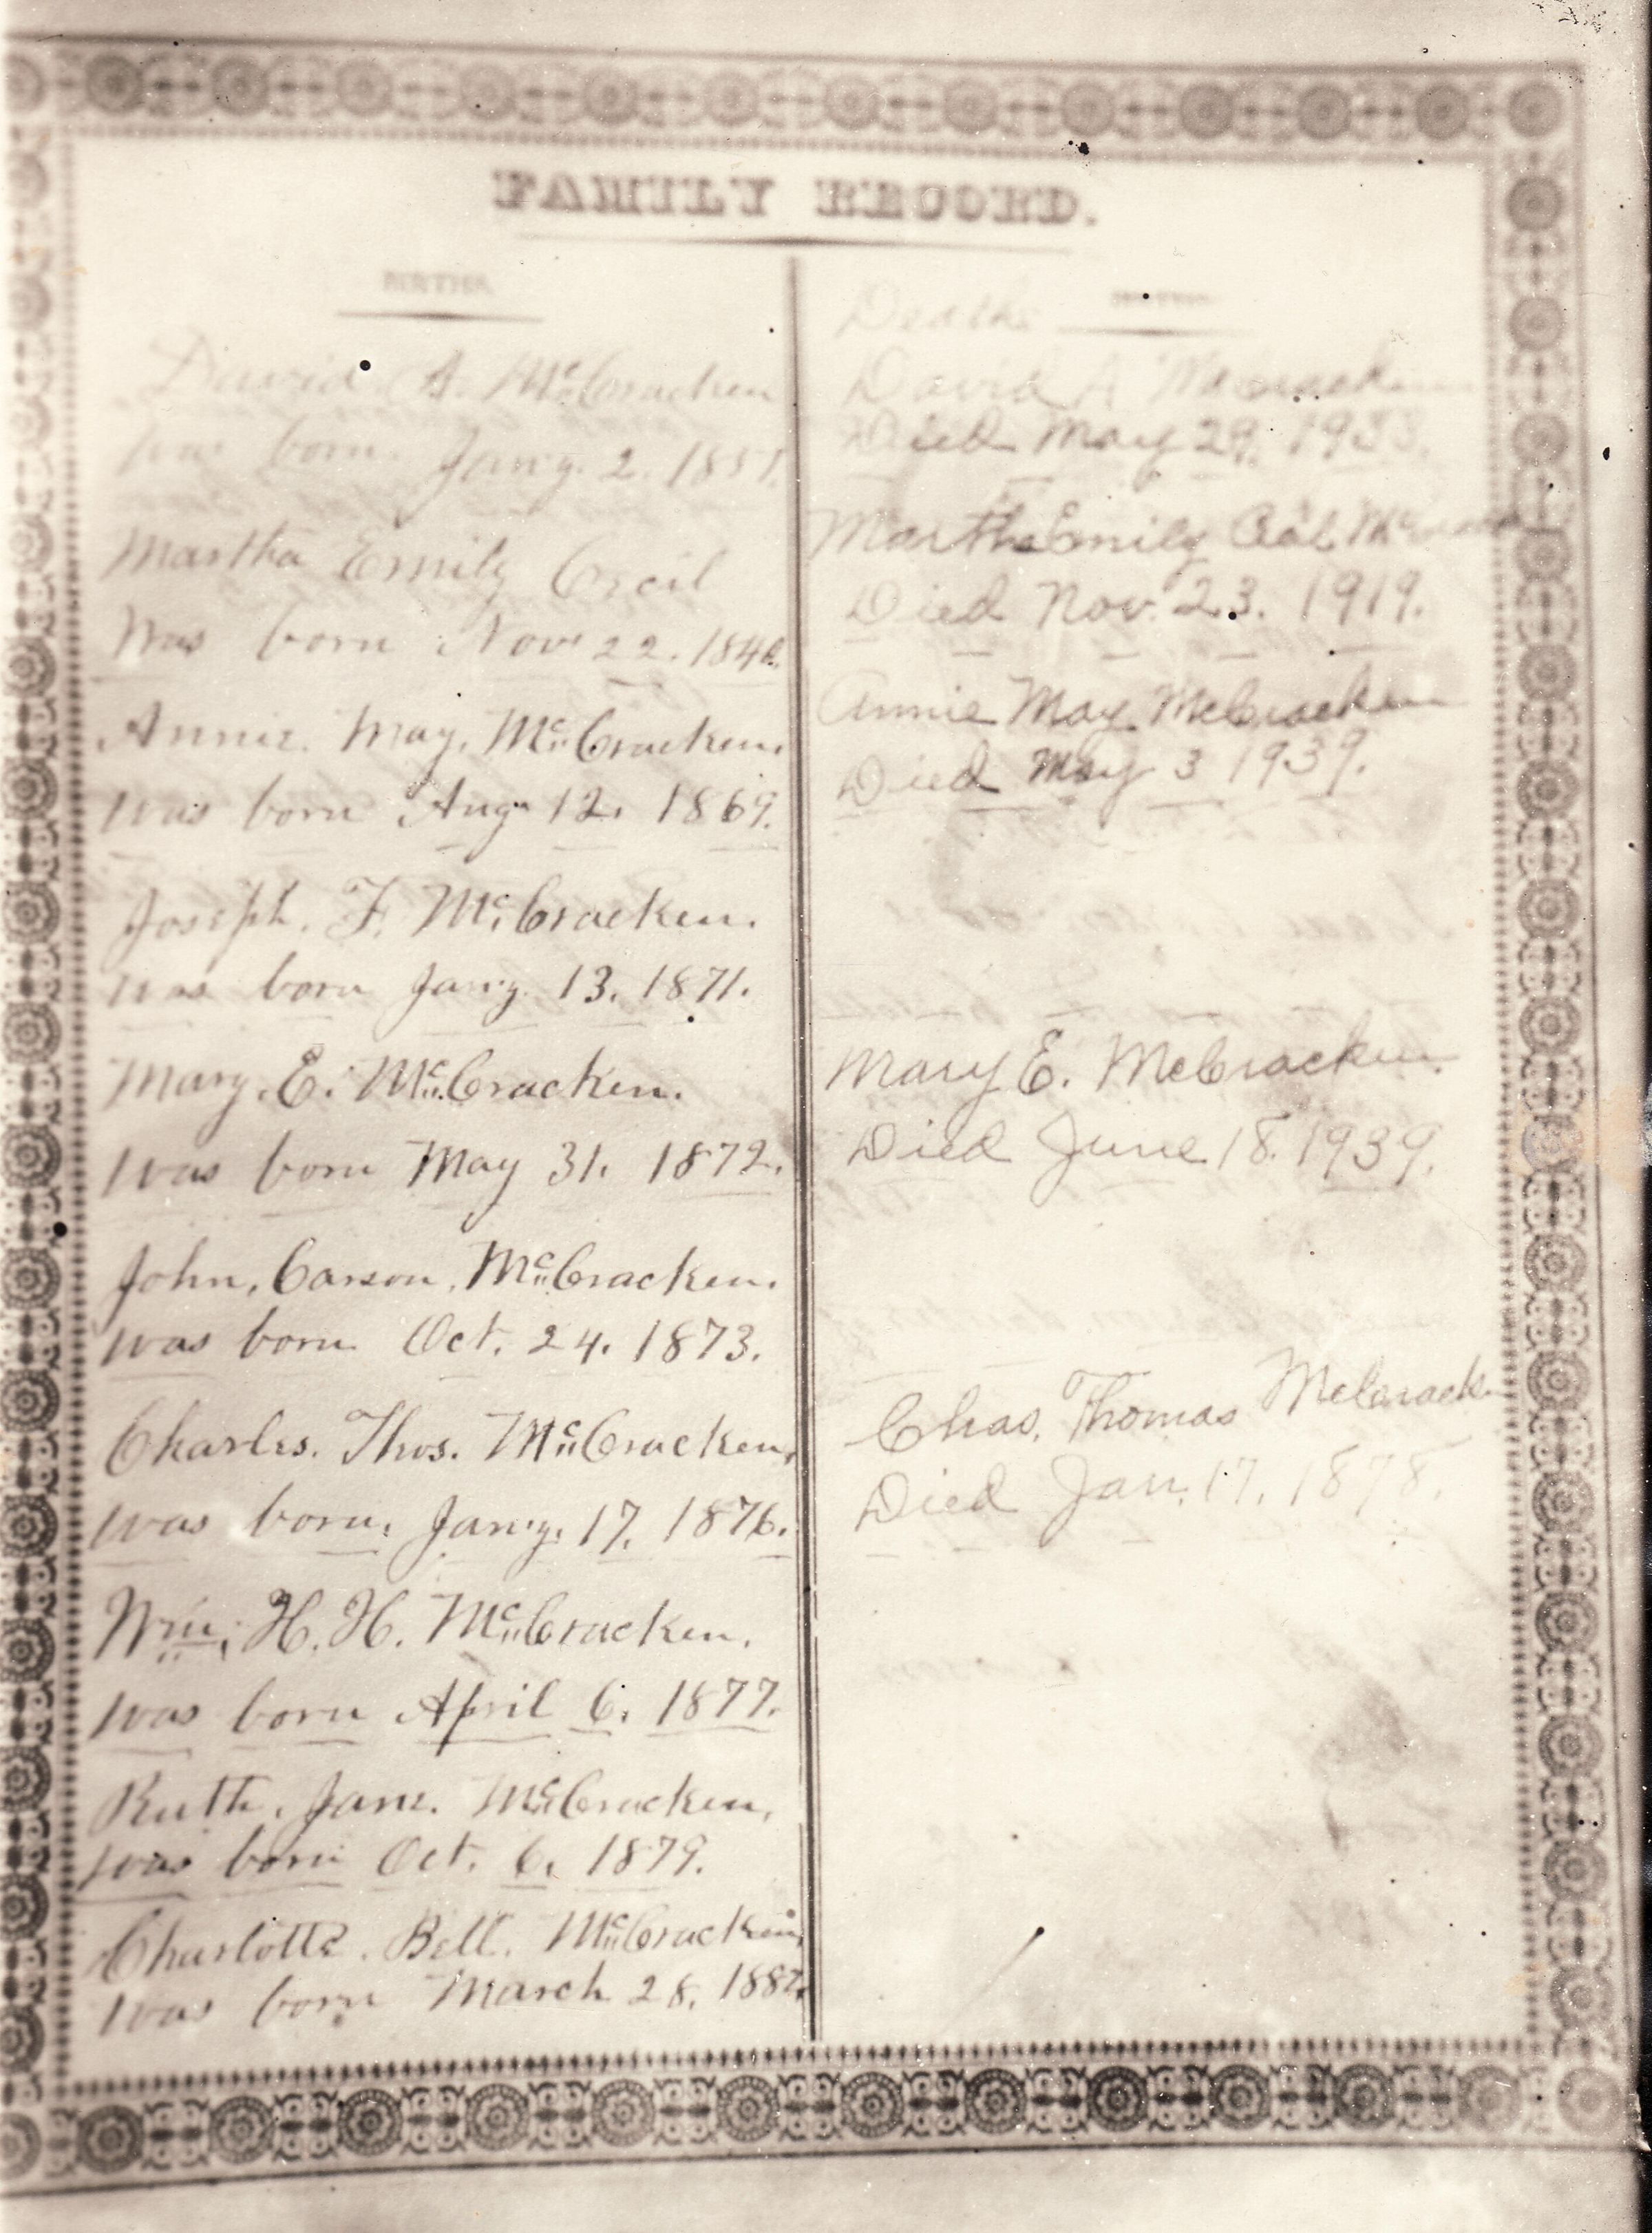 FAMILY RECORD.
BIRTHS.
David A. McCracken
was born Jany. 2. 1851.
Martha Emily Cecil
Was born Nov 22.
Annie. May. McCracken.
was born Aug 12. 1869.
Joseph. F. McCracken.
was born Jany. 13. 1871.
Mary. E. McCracken.
was born May 31. 1872.
John. Carson. McCracken.
was born Oct. 24. 1873.
Charles. Thos. McCracken.
was born. Jany. 17. 1876.
Wm. H. H. McCracken.
was born April 6. 1877.
Ruth. Jane. McCracken.
was born Oct. 6. 1879.
Charlotte. Bell. McCracken
was born March 28. 1882.
Deaths
BIRTHS.
David A McCracken
Died May 29. 1933.
Martha Emily Cecil
Died Nov. 23. 1919.
Annie May McCracken
Died May 3 1939.
Mary E. McCracken.
Died June 18. 1939.
Chas. Thomas McCrack
Died Jan. 17. 1878.